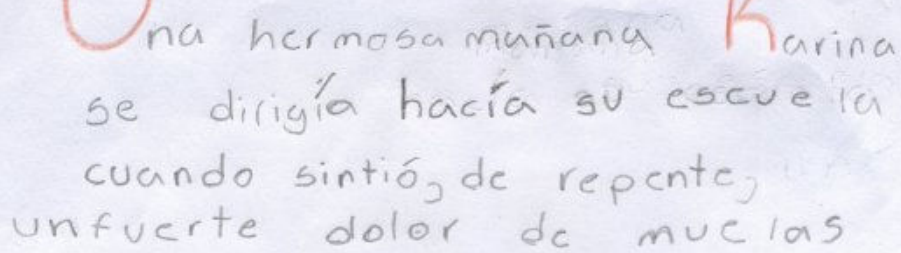 Una hermosa mañana Karina
se dirigía hacía su escuela
cuando sintió, de repente,
unfuerte dolor de muelas